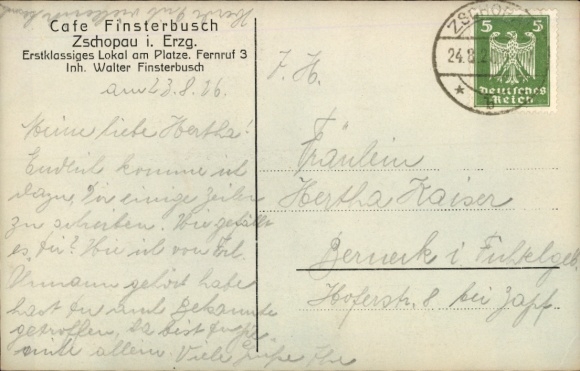 Cafe Finsterbusch
Zschopau i. Erzg.
Erstklassiges Lokal am Platze. Fernruf 3
Inh. Walter Finsterbusch
am 23.8.26.
Meine liebe Hertha!
Endlich komme ich
dazu, Dir einige Zeilen
zu schreiben. Wie gefällt
es Dir? Wie ich von Frl.
Uhmann gehört habe
hast Du auch Bekannte
getroffen, da bist Du
nicht allein. Viele Grüße Ihr
ZSCHOPAU
24.8.2
5 5
Deutsches
Reich
* b
J. H.
Fräulein
Hertha Kaiser
Berneck i. Fichtelgeb.
Hoferstr. 8 bei Zapf.